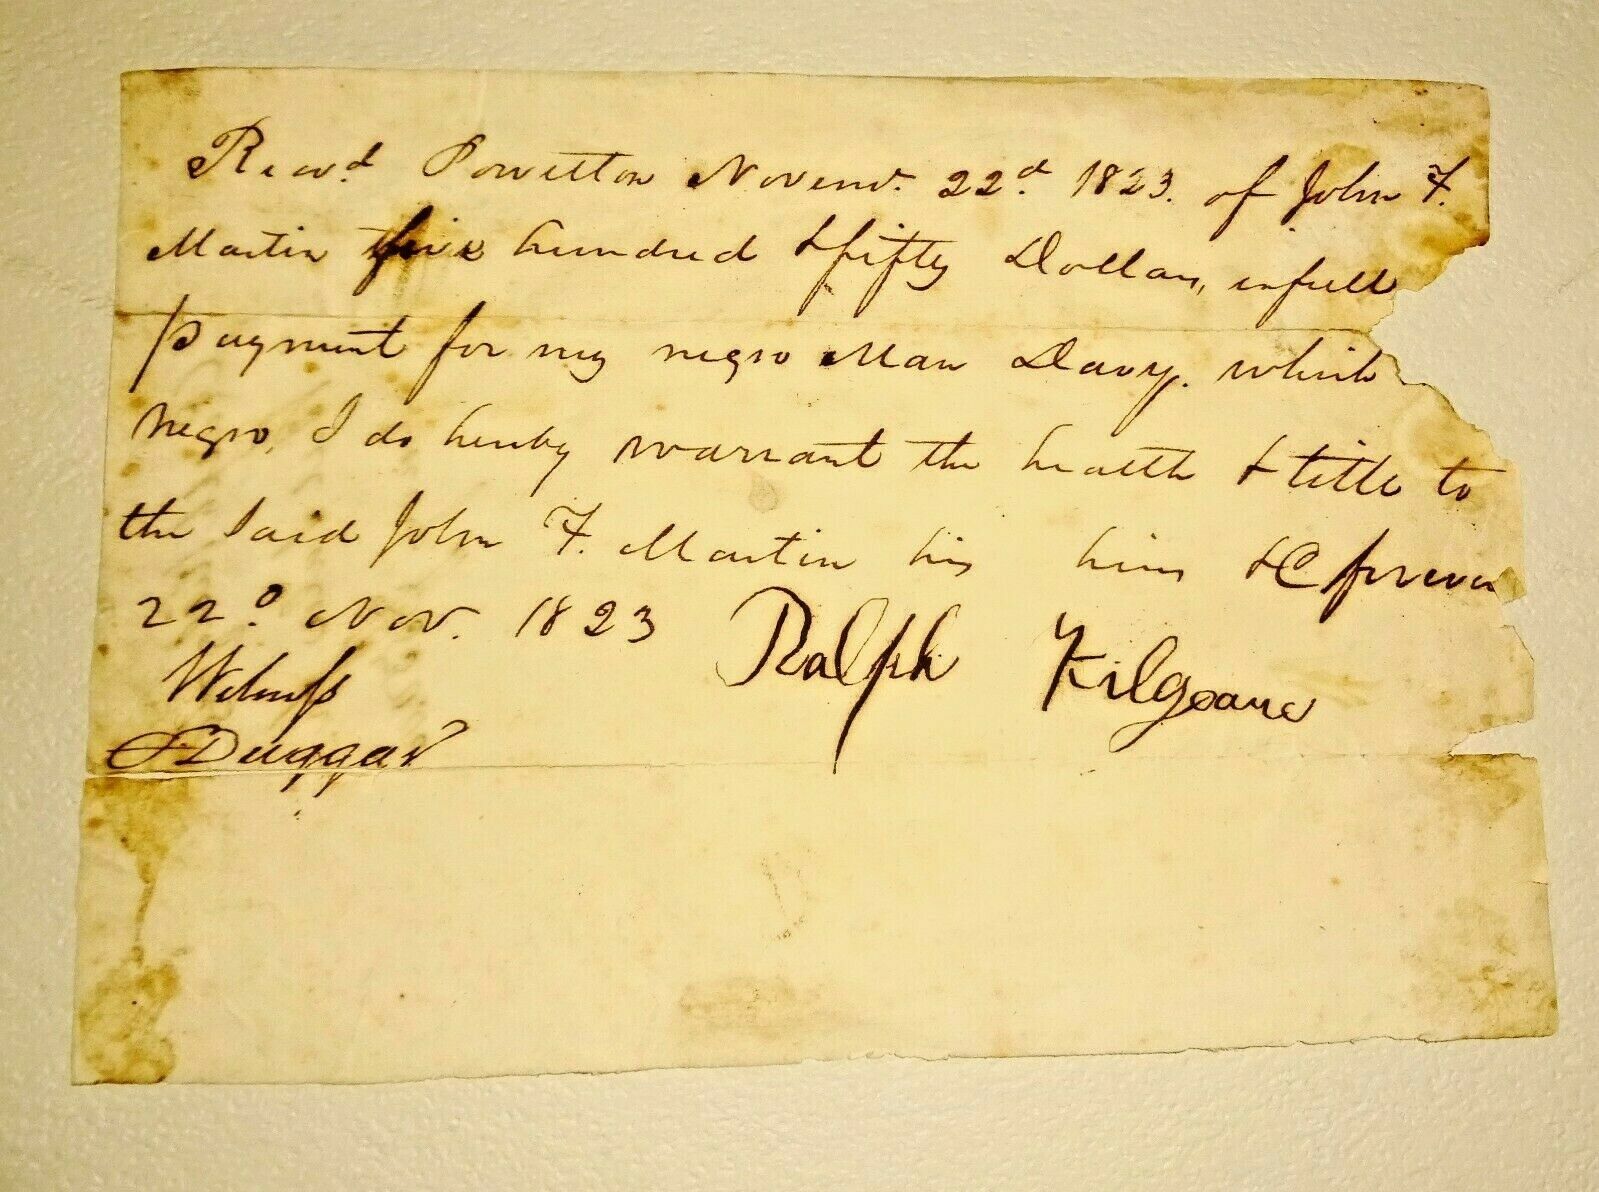 Recvd. Powelton Novemr. 22d. 1823. of John F.
Martin five hundred & fifty Dollars, in full
payment for my negro Man Davy. which
negro, I do hereby warrant the health & title to
the said John F. Martin his heirs &C forever
22d. Nov. 1823 Ralph Kilgoare
Witness
Duggar